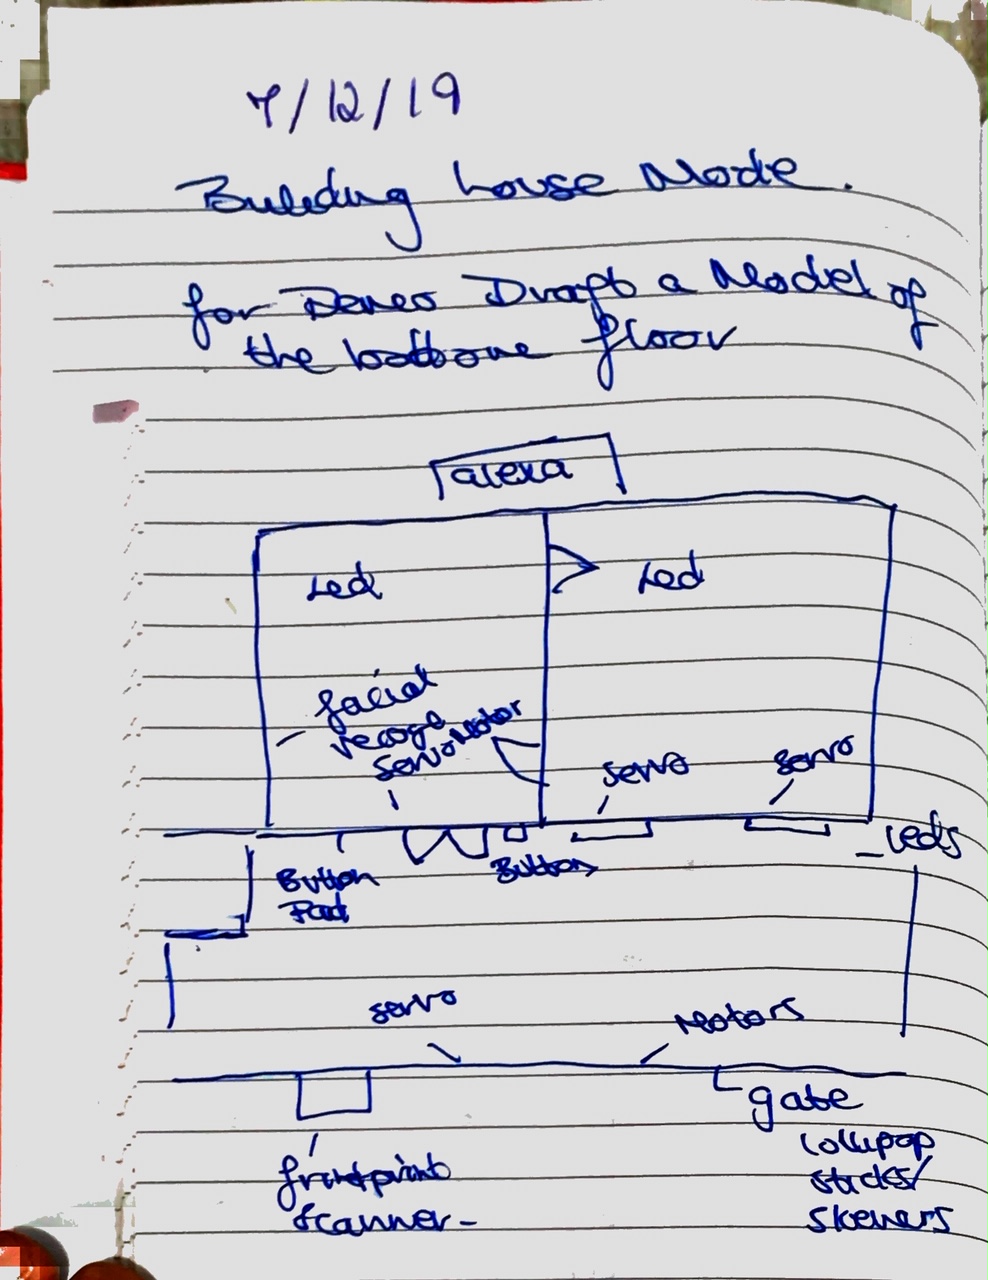 7/12/19
Building house Mode.
for Demo Draft a Model of
the bottome floor
alexa
Led
Led
facial
recoge
Servo Motor
Servo
Servo
Leds
Button
Pad
Button
servo
Motors
gate
lollipop
sticks/
skewers
scanner-